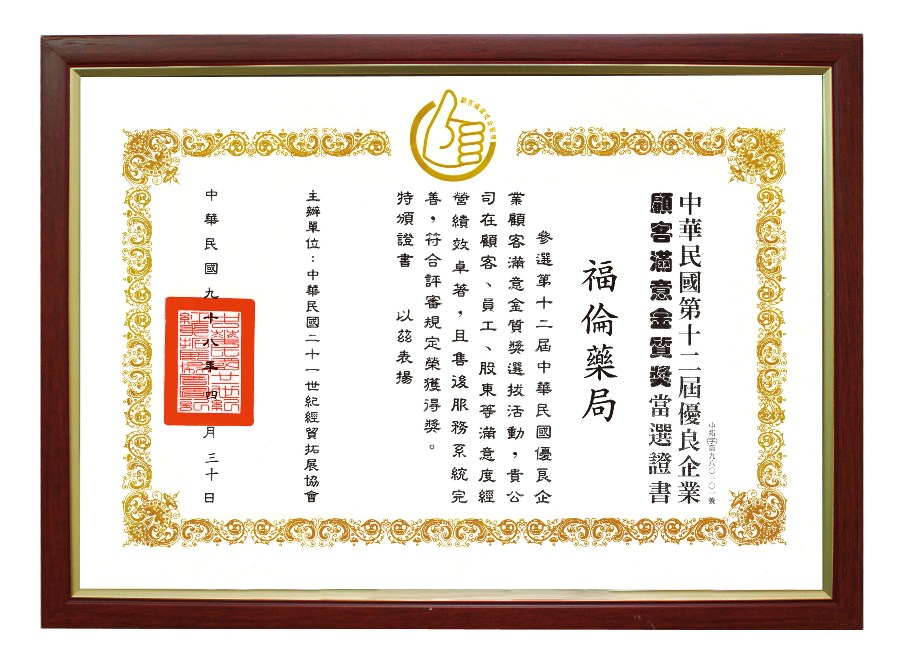 中華民國第十二屆優良企業
顧客滿意金質獎當選證書
福倫藥局
參選第十二屆中華民國優良企
業顧客滿意金質獎選拔活動，貴公
司在顧客、員工、股東等滿意度經
營績效卓著，且售後服務系統完
善，符合評審規定榮獲得獎。
特頒證書 以茲表揚
主辦單位：中華民國二十一世紀經貿拓展協會
中華民國九十八年四月三十日